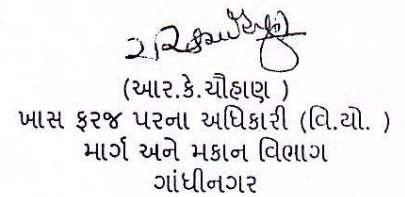 (આર.કે.ચૌહાણ )
ખાસ ફરજ પરના અધિકારી (વિ.યો. )
માર્ગ અને મકાન વિભાગ
ગાંધીનગર